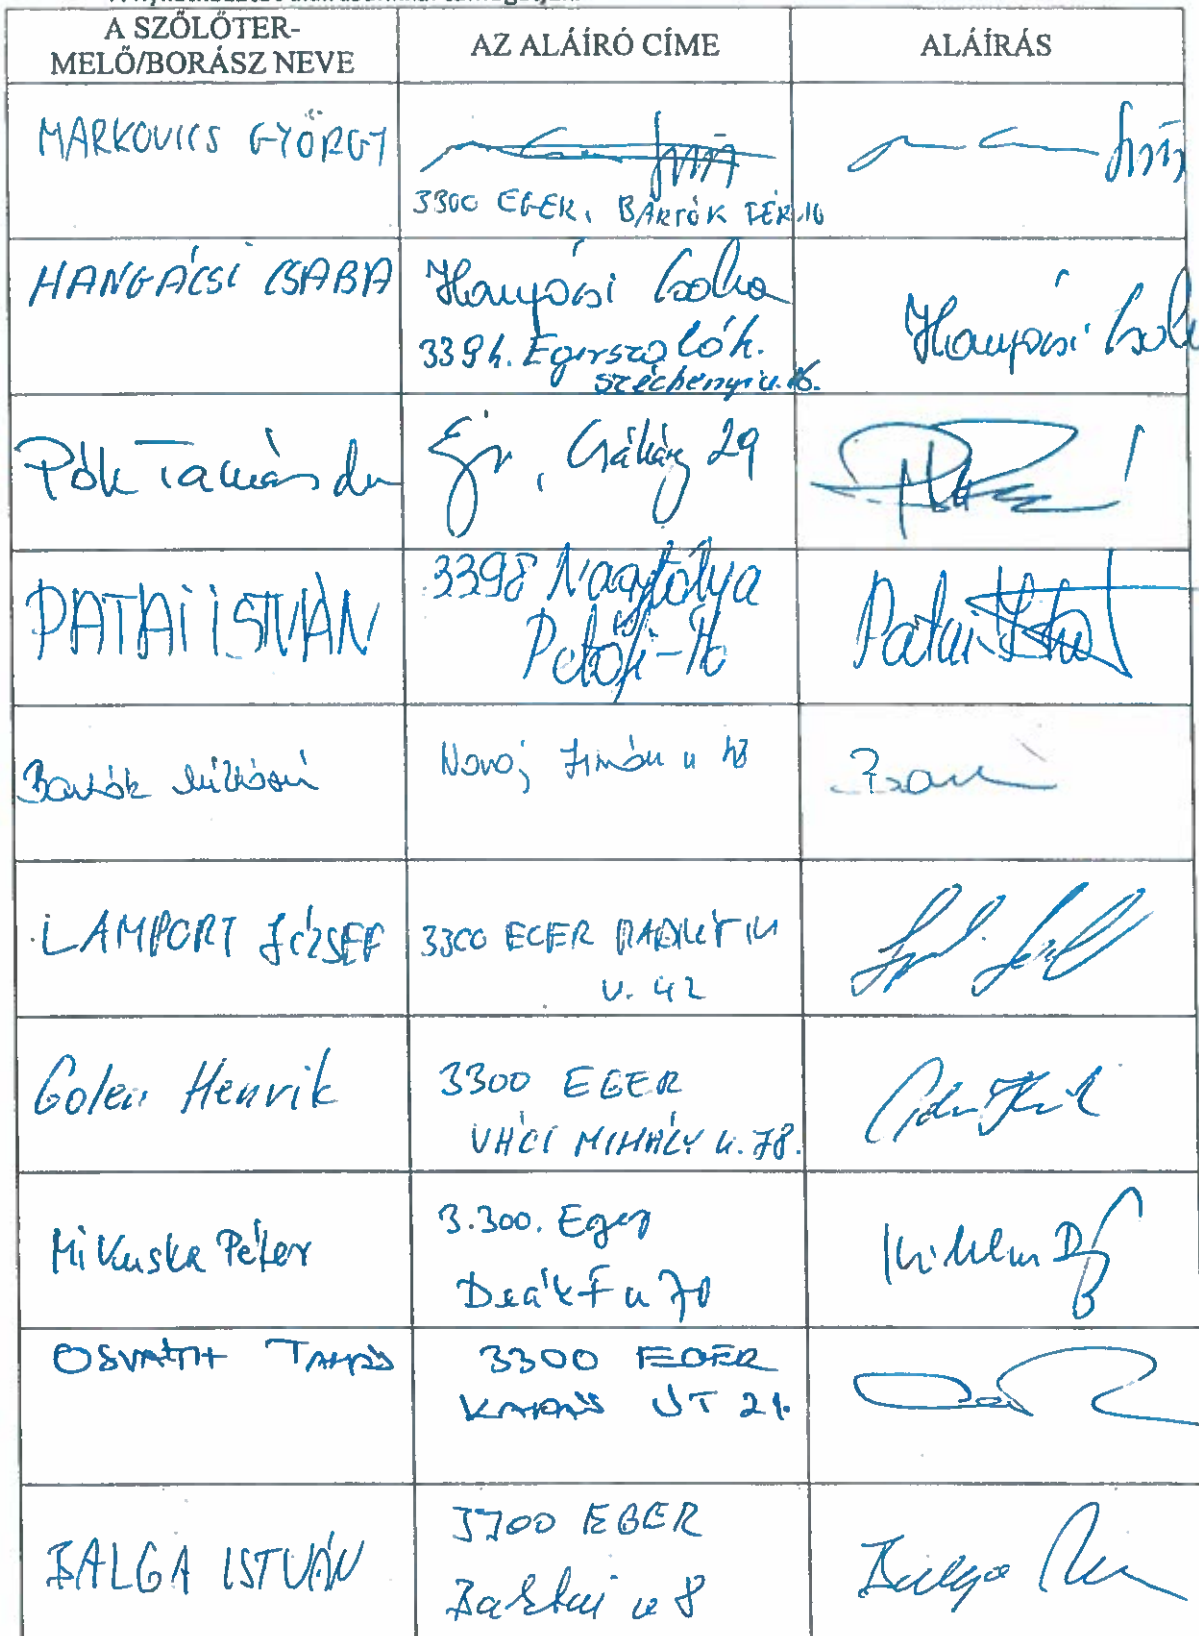 A SZŐLŐTER-
MELŐ/BORÁSZ NEVE
AZ ALÁÍRÓ CÍME
ALÁÍRÁS
MARKOVICS GYÖRGY
3300 EGER, BARTÓK TÉR 10
HANGÁCSI CSABA
Hangácsi Csaba
3394. Egerszalók.
Széchenyi u. 16.
Hangácsi
Pók Tamás dr
Eger, Csákány 29
PATAI ISTVÁN
3398 Nagytálya
Petőfi - 16
Patai
Bartók Miklósné
Novaj
LAMPORT JÓZSEF
3300 EGER RADNÓTI M
U. 42
Golen Henrik
3300 EGER
VÁCI MIHÁLY u. 78.
Mikuska Péter
3.300. Eger
Deák F u 70
OSVÁTH TAMÁS
3300 EGER
ÚT 21.
BALGA ISTVÁN
3300 EGER
Baktai u 8
Balga